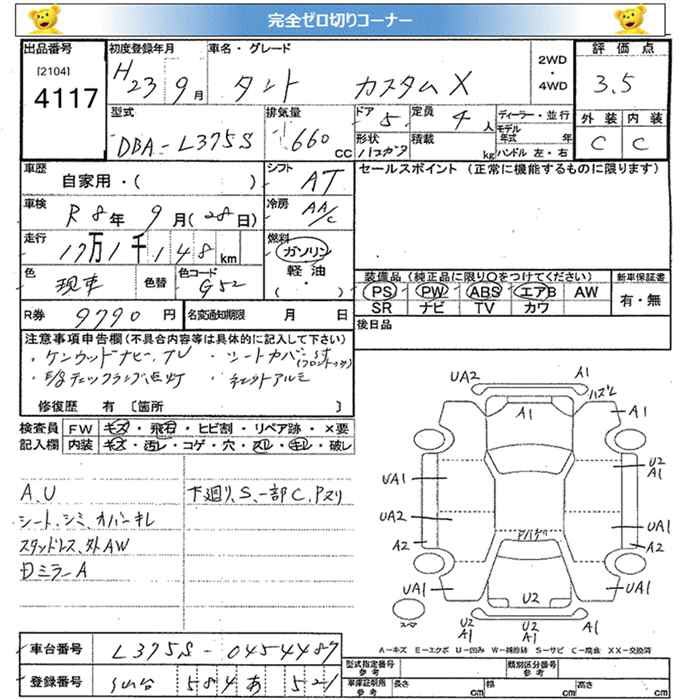 完全ゼロ切りコーナー
出品番号 初度登録年月 車名・グレード 2WD 評価点
[2104] H23 9月 タント カスタムX ・ 3.5
4117 4WD
型式 排気量 ドア 5 定員 4人 ディーラー・並行 外装 内装
DBA-L375S 660cc 形状 積載 kg モデル年式 年 C C
ハンドル 左・右
車歴 シフト セールスポイント (正常に機能するものに限ります)
自家用・( ) AT
車検 R8年9月(28日) 冷房 AA/C
走行 17万1千148km 燃料 ガソリン
軽油
・
( )
色 現車 色替 色コード G52
装備品(純正品に限り○をつけてください) 新車保証書
PS PW ABS エアB AW 有・無
SR ナビ TV カワ
R券 9790円 名変通知期限 月 日 後日品
注意事項申告欄(不具合内容等は具体的に記入して下さい)
・ケンウッドナビ、TV ・シートカバー
・E/gチェックランプ点灯 ・社外アルミ
修復歴 有 〔箇所 〕
検査員 FW キズ・飛石・ヒビ割・リペア跡・×要
記入欄 内装 キズ・汚レ・コゲ・穴・スレ・キレ・破レ
A、U 下廻り、S、一部C、Pスリ
シート、シミ、カバーキレ
スタッドレス、外AW
ミラーA
UA2 A1
A1 ハズレ A1
UA1 U2 A1
UA2 UA1
A2 A2
ドハゲ
UA1 UA1
U2
U2 A1 U2 A1
A-キズ E-エクボ U-凹み W-補修跡 S-サビ C-腐食 XX-交換済
車台番号 L375S-0454487
登録番号 仙台 584 あ 521
型式指定番号 類別区分番号
車庫証明用(参考) 長さ cm 幅 cm 高さ cm